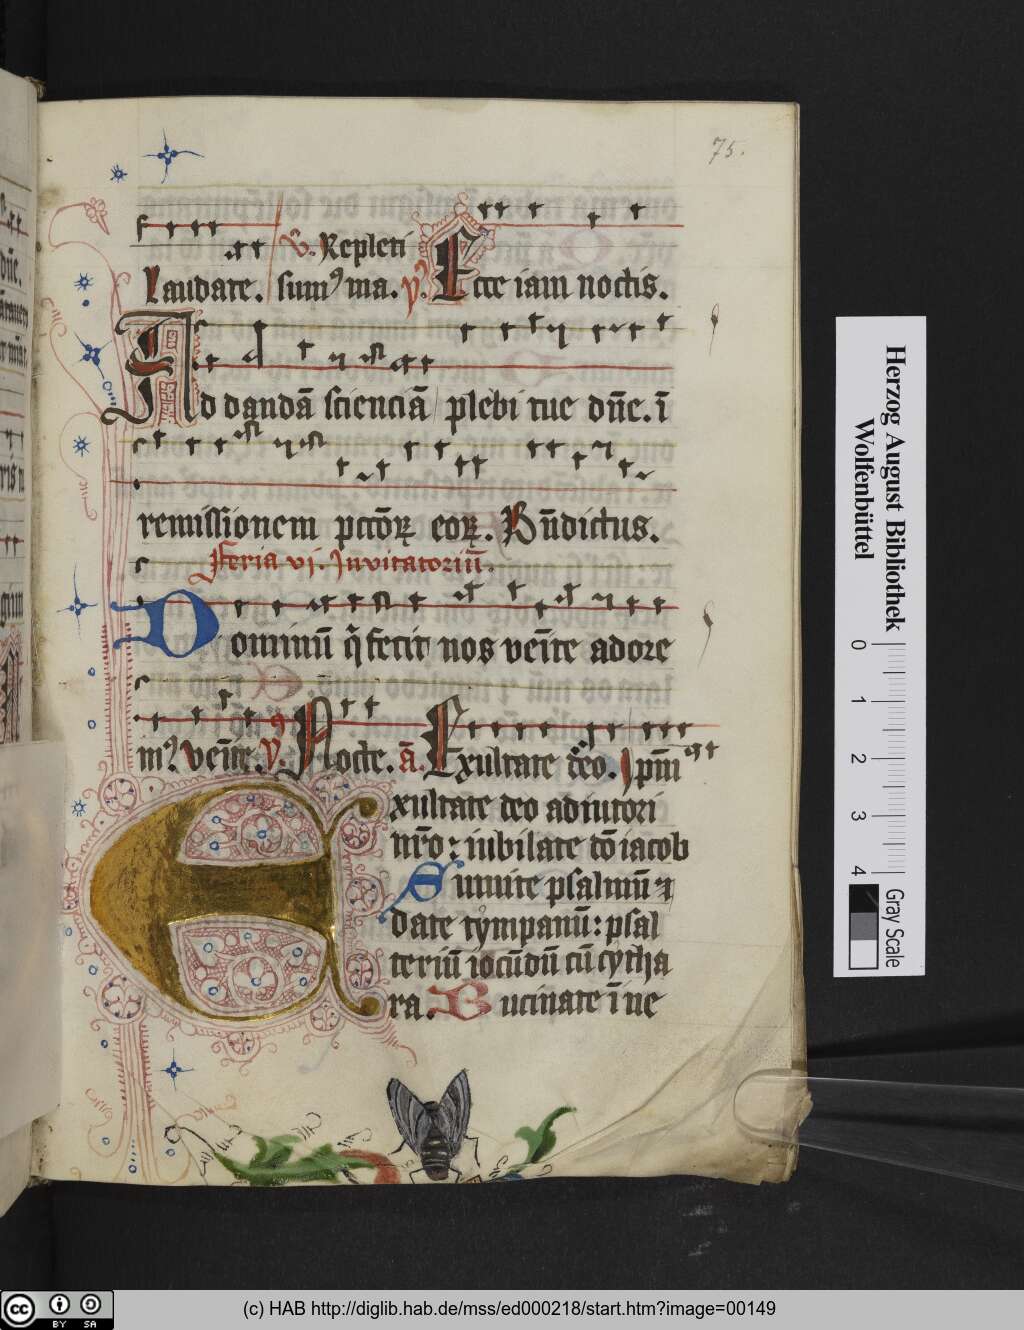 75.
℣. Repleti
Laudate. sumꝰ ma. ℣. Ecce iam noctis.
Ad dandā scienciā plebi tue dn̄e. ī
remissionem pctōꝝ eoꝝ. Bn̄dictus.
Feria vi. Invitatoriū.
Dominū q̄ fecit nos venīte adore
mꝰ. venīte. ℣. Nocte. ā. Exultate deo. Ipm̄
Exultate deo adiutori
nr̄o: iubilate dō iacob
Sumite psalmū ⁊
date tympanū: psal
teriū iocūdū cū cytha
ra. Bucinate ī ne
Herzog August Bibliothek
Wolfenbüttel
0 1 2 3 4 Gray Scale
cc BY SA
(c) HAB http://diglib.hab.de/mss/ed000218/start.htm?image=00149